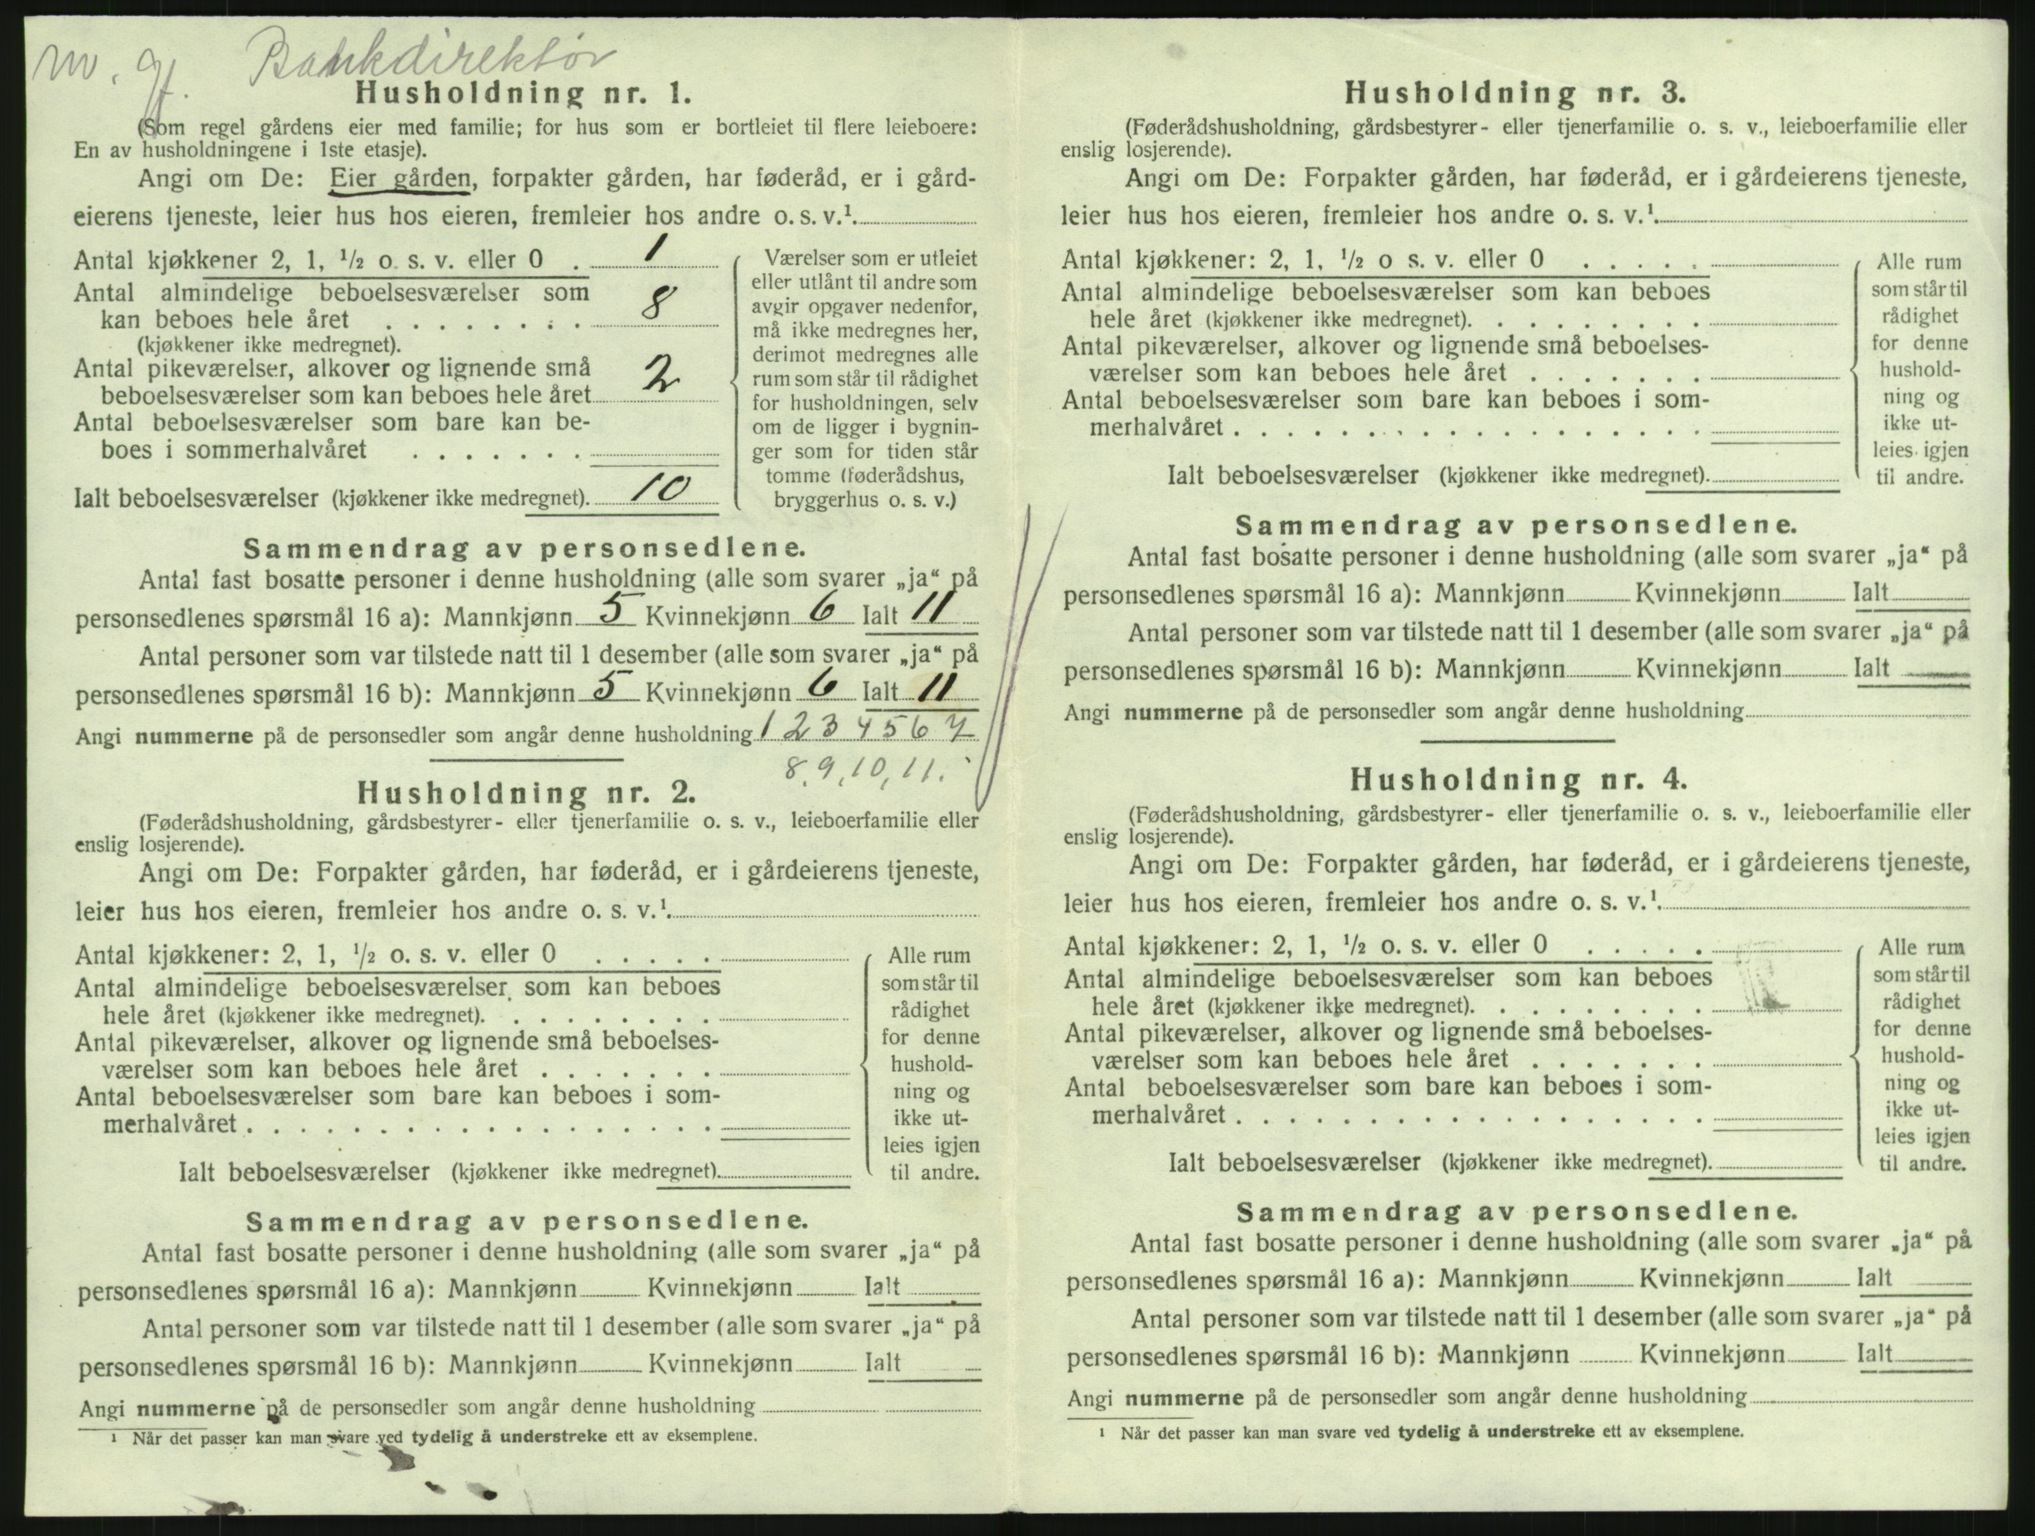 m. gf. Bankdirektör
Husholdning nr. 1.
(Som regel gårdens eier med familie; for hus som er bortleiet til flere leieboere:
En av husholdningene i 1ste etasje).
Angi om De: Eier gården, forpakter gården, har føderåd, er i gård-
eierens tjeneste, leier hus hos eieren, fremleier hos andre o. s. v.¹.
Antal kjøkkener 2, 1, ½ o. s. v. eller 0 . 1
Antal almindelige beboelsesværelser som
kan beboes hele året . . . . . . . . 8
(kjøkkener ikke medregnet).
Antal pikeværelser, alkover og lignende små
beboelsesværelser som kan beboes hele året 2
Antal beboelsesværelser som bare kan be-
boes i sommerhalvåret . . . . . . .
Ialt beboelsesværelser (kjøkkener ikke medregnet). 10
Værelser som er utleiet
eller utlånt til andre som
avgir opgaver nedenfor,
må ikke medregnes her,
derimot medregnes alle
rum som står til rådighet
for husholdningen, selv
om de ligger i bygnin-
ger som for tiden står
tomme (føderådshus,
bryggerhus o. s. v.)
Sammendrag av personsedlene.
Antal fast bosatte personer i denne husholdning (alle som svarer „ja“ på
personsedlenes spørsmål 16 a): Mannkjønn 5 Kvinnekjønn 6 Ialt 11
Antal personer som var tilstede natt til 1 desember (alle som svarer „ja“ på
personsedlenes spørsmål 16 b): Mannkjønn 5 Kvinnekjønn 6 Ialt 11
Angi nummerne på de personsedler som angår denne husholdning 1 2 3 4 5 6 7
8, 9, 10, 11.
Husholdning nr. 2.
(Føderådshusholdning, gårdsbestyrer- eller tjenerfamilie o. s. v., leieboerfamilie eller
enslig losjerende).
Angi om De: Forpakter gården, har føderåd, er i gårdeierens tjeneste,
leier hus hos eieren, fremleier hos andre o. s. v.¹.
Antal kjøkkener: 2, 1, ½ o. s. v. eller 0 . . . . .
Antal almindelige beboelsesværelser som kan beboes
hele året (kjøkkener ikke medregnet). . . . . . . . .
Antal pikeværelser, alkover og lignende små beboelses-
værelser som kan beboes hele året . . . . . . .
Antal beboelsesværelser som bare kan beboes i som-
merhalvåret . . . . . . . . . . . . . . . . . .
Ialt beboelsesværelser (kjøkkener ikke medregnet).
Alle rum
som står til
rådighet
for denne
hushold-
ning og
ikke ut-
leies igjen
til andre.
Sammendrag av personsedlene.
Antal fast bosatte personer i denne husholdning (alle som svarer „ja“ på
personsedlenes spørsmål 16 a): Mannkjønn Kvinnekjønn Ialt
Antal personer som var tilstede natt til 1 desember (alle som svarer „ja“ på
personsedlenes spørsmål 16 b): Mannkjønn Kvinnekjønn Ialt
Angi nummerne på de personsedler som angår denne husholdning
¹ Når det passer kan man svare ved tydelig å understreke ett av eksemplene.
Husholdning nr. 3.
(Føderådshusholdning, gårdsbestyrer- eller tjenerfamilie o. s. v., leieboerfamilie eller
enslig losjerende).
Angi om De: Forpakter gården, har føderåd, er i gårdeierens tjeneste,
leier hus hos eieren, fremleier hos andre o. s. v.¹.
Antal kjøkkener: 2, 1, ½ o s. v. eller 0 . . . . .
Antal almindelige beboelsesværelser som kan beboes
hele året (kjøkkener ikke medregnet). . . . . . . . .
Antal pikeværelser, alkover og lignende små beboelses-
værelser som kan beboes hele året . . . . . . .
Antal beboelsesværelser som bare kan beboes i som-
merhalvåret . . . . . . . . . . . . . . . . . .
Ialt beboelsesværelser (kjøkkener ikke medregnet).
Alle rum
som står til
rådighet
for denne
hushold-
ning og
ikke ut-
leies igjen
til andre.
Sammendrag av personsedlene.
Antal fast bosatte personer i denne husholdning (alle som svarer „ja“ på
personsedlenes spørsmål 16 a): Mannkjønn Kvinnekjønn Ialt
Antal personer som var tilstede natt til 1 desember (alle som svarer „ja“ på
personsedlenes spørsmål 16 b): Mannkjønn Kvinnekjønn Ialt
Angi nummerne på de personsedler som angår denne husholdning
Husholdning nr. 4.
(Føderådshusholdning, gårdsbestyrer- eller tjenerfamilie o. s. v., leieboerfamilie eller
enslig losjerende).
Angi om De: Forpakter gården, har føderåd, er i gårdeierens tjeneste,
leier hus hos eieren, fremleier hos andre o. s. v.¹.
Antal kjøkkener: 2, 1, ½ o. s. v. eller 0 . . . . .
Antal almindelige beboelsesværelser som kan beboes
hele året (kjøkkener ikke medregnet). . . . . . . . .
Antal pikeværelser, alkover og lignende små beboelses-
værelser som kan beboes hele året . . . . . . .
Antal beboelsesværelser som bare kan beboes i som-
merhalvåret . . . . . . . . . . . . . . . . . .
Ialt beboelsesværelser (kjøkkener ikke medregnet).
Alle rum
som står til
rådighet
for denne
hushold-
ning og
ikke ut-
leies igjen
til andre.
Sammendrag av personsedlene.
Antal fast bosatte personer i denne husholdning (alle som svarer „ja“ på
personsedlenes spørsmål 16 a): Mannkjønn Kvinnekjønn Ialt
Antal personer som var tilstede natt til 1 desember (alle som svarer „ja“ på
personsedlenes spørsmål 16 b): Mannkjønn Kvinnekjønn Ialt
Angi nummerne på de personsedler som angår denne husholdning
¹ Når det passer kan man svare ved tydelig å understreke ett av eksemplene.